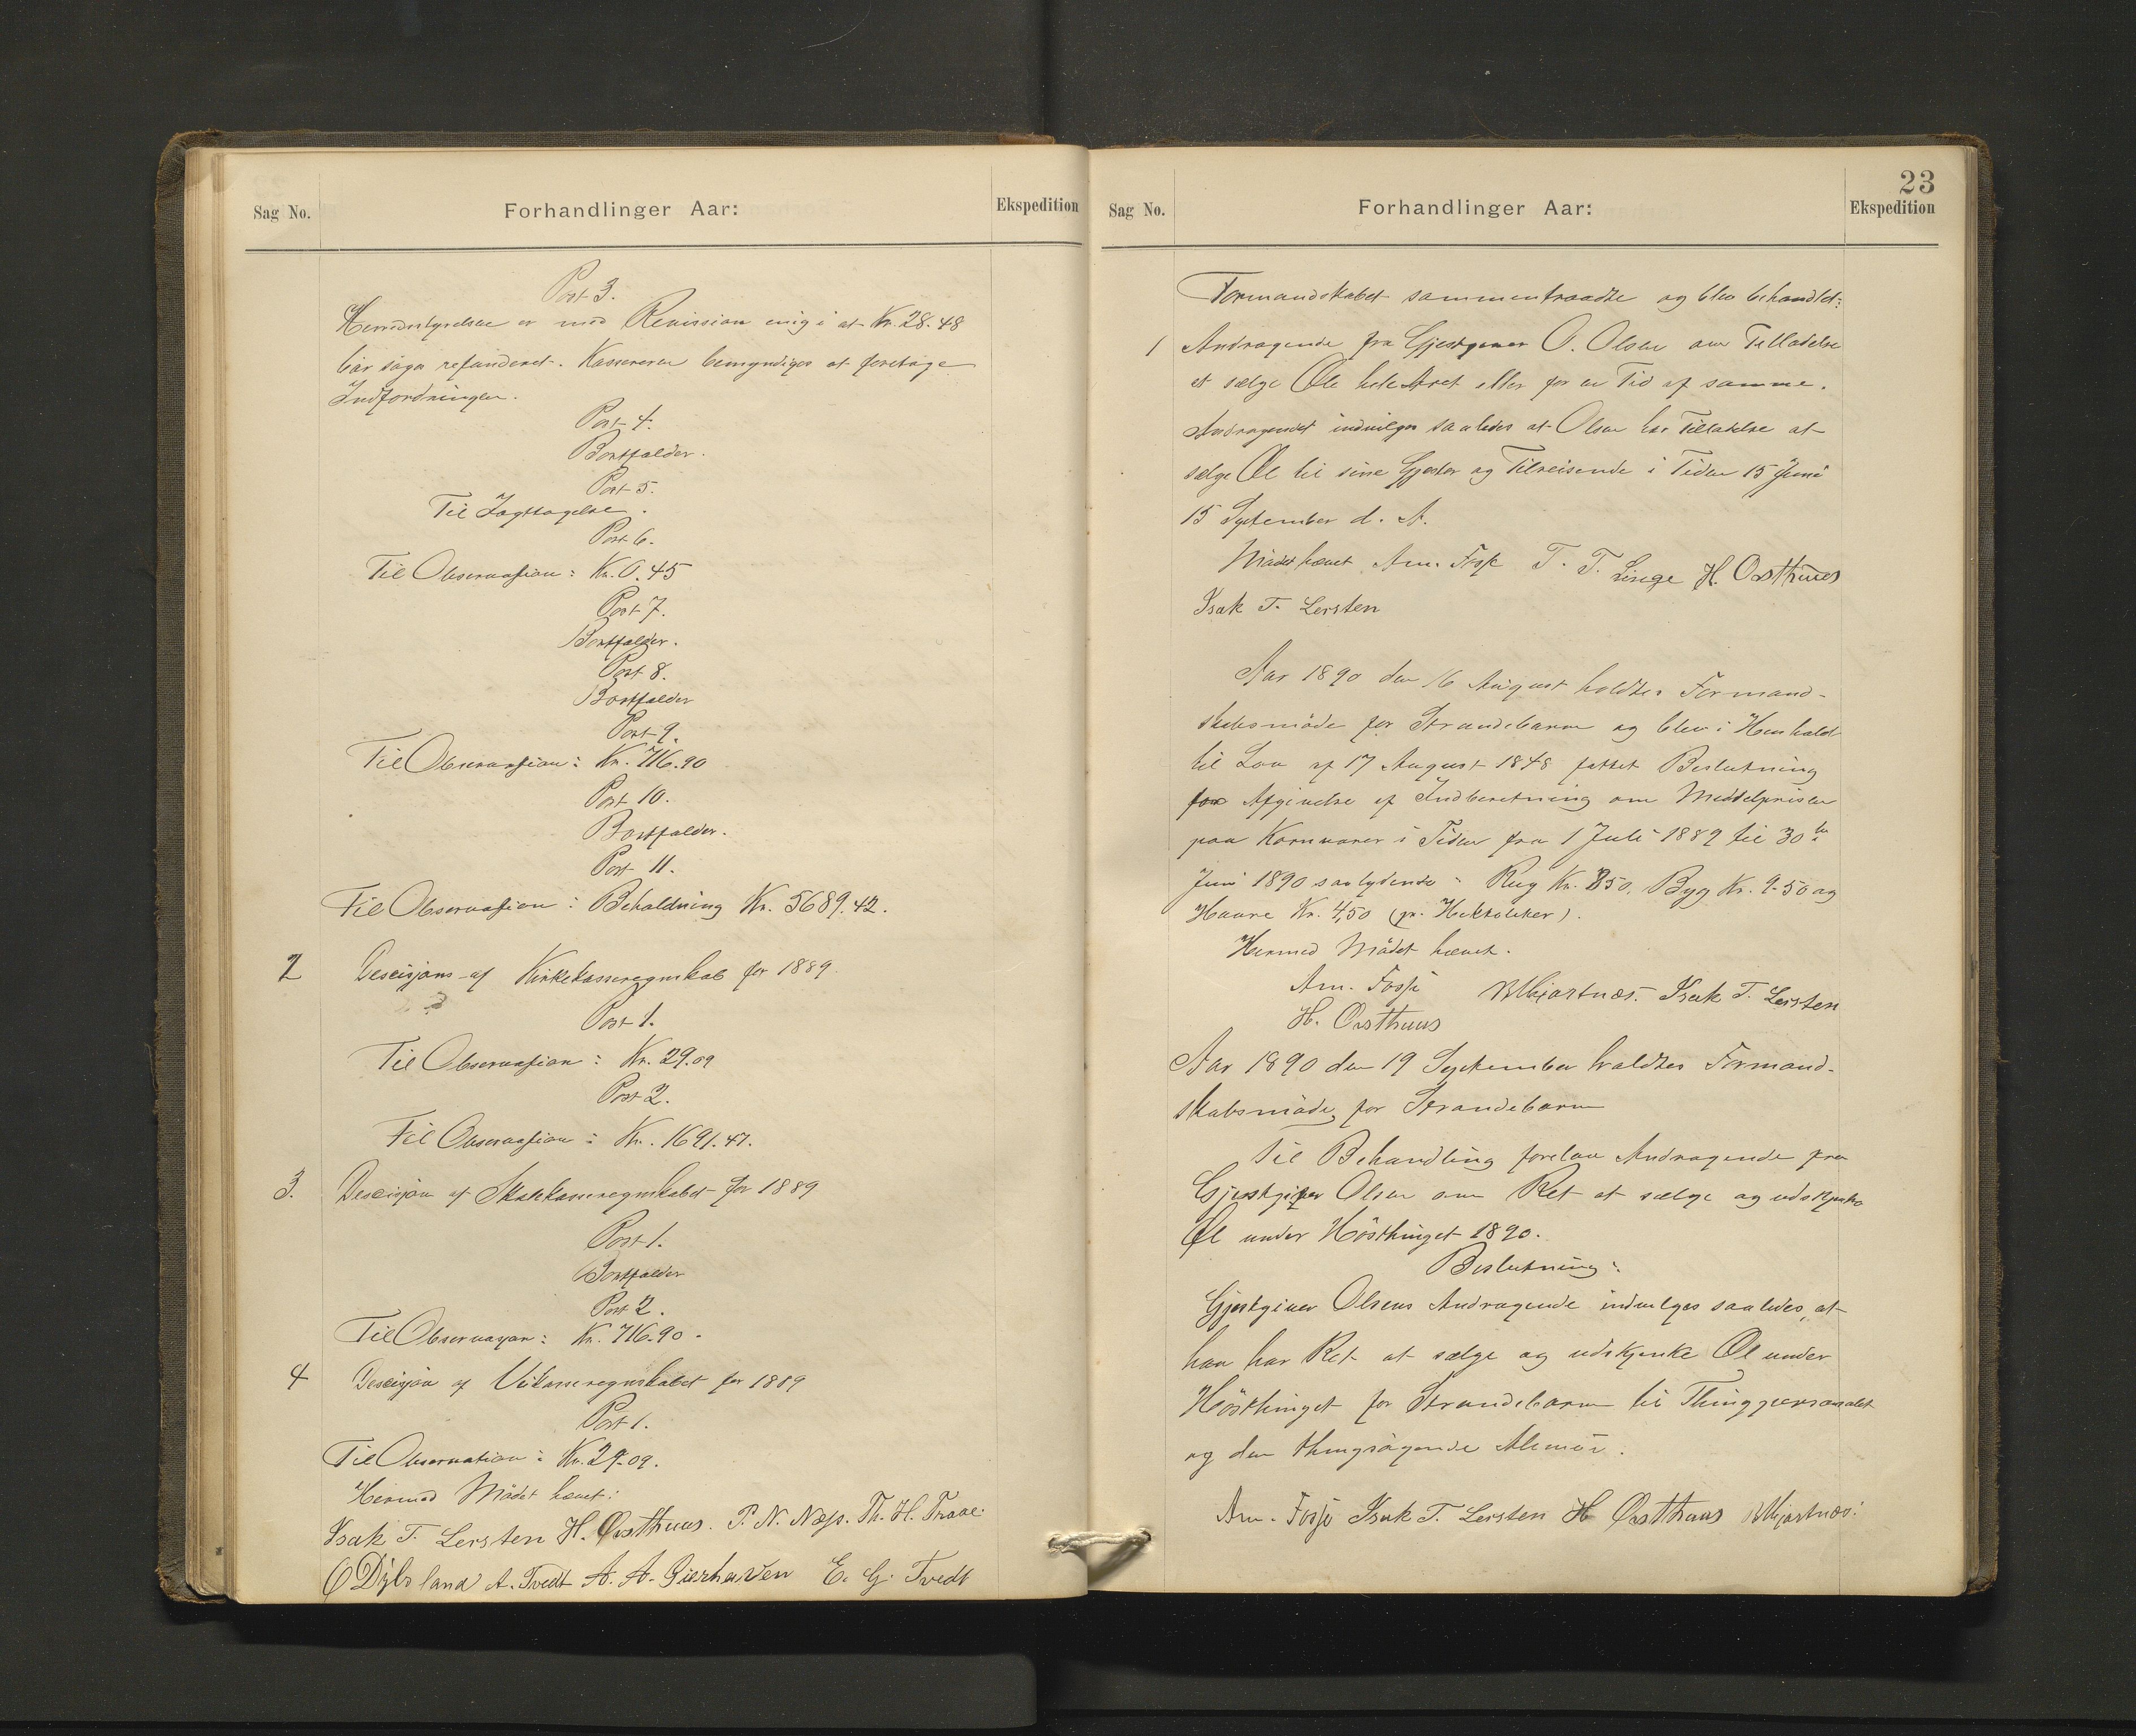 Sag No.
Forhandlinger Aar:
Ekspedition
Post 3.
Herredsstyrelsen er med Revission enig i at Kr. 28.48
bør søges refunderet. Kassereren bemyndiges at foretage
Indfordringen.
Post 4.
Bortfalder.
Post 5.
Til Iagttagelse.
Post 6.
Til Observasjion: Kr. 0.45
Post 7.
Bortfalder.
Post 8.
Bortfalder
Post 9.
Til Observasjion: Kr. 716.90
Post 10.
Bortfalder.
Post 11.
Til Observasjion: Beholdning Kr. 5689.42.
2 Descisjons af Kirkekasseregnskab for 1889.
Post 1.
Til Observasjion: Kr. 29.09
Post 2.
Til Observasjion: Kr. 1691.47.
3. Descisjon af Skolekasseregnskabet for 1889
Post 1.
Bortfalder
Post 2.
Til Observasjon: Kr. 716.90.
4 Descisjon af Veikasseregnskabet for 1889
Post 1.
Til Observation: Kr. 29.09.
Hermed Mödet hævet:
Isak T. Lersten H. Oústhuus. P. N. Næs. Th. H. Traae.
O Dybsland A. Tvedt A. A. Gierhaven E. G. Tvedt
23
Sag No.
Forhandlinger Aar:
Ekspedition
Formandskabet sammentraadte og blev behandlet:
1 Andragende fra Gjestgiver O. Olsen om Tilladelse
at sælge Öl hele Aret eller for en Tid af samme.
Andragendet indvilges saaledes at Olsen har Tilladelse at
sælge Öl til sine Gjester og Tilreisende i Tiden 15 Juni
15 September d. A.
Mödet hævet Am. Fosse T. T. Linge H. Oústhuus
Isak T. Lersten
Aar 1890 den 16 August holdtes Formand-
skabsmöde for Strandebarm og blev i Henhold
til Lov af 17 August 1848 fattet Beslutning
for Afgivelse af Indberetning om Middelprisen
paa Kornvarer i Tiden fra 1 Juli 1889 til 30te
Juni 1890 saalydende: Rug Kr. 850. Byg Kr. 9.50 og
Havre Kr. 4,50 (pr. Hektoliter).
Hermed Mödet hævet.
Am. Fosse Isak T. Lersten
H. Oústhuus
Aar 1890 den 19 September holdtes Formand-
skabsmöde, for Strandebarm
Til Behandling forelaa Andragende fra
Gjestgiver Olsen om Ret at sælge og udskjenke
Öl under Hösthinget 1890.
Beslutning:
Gjestgiver Olsens Andragende indvilges saaledes, at
han har Ret at sælge og udskjenke Öl under
Hösthinget for Strandebarm til Thingpersonalet
og den thingsögende Almue.
Am. Fosse Isak T. Lersten H Oústhuus